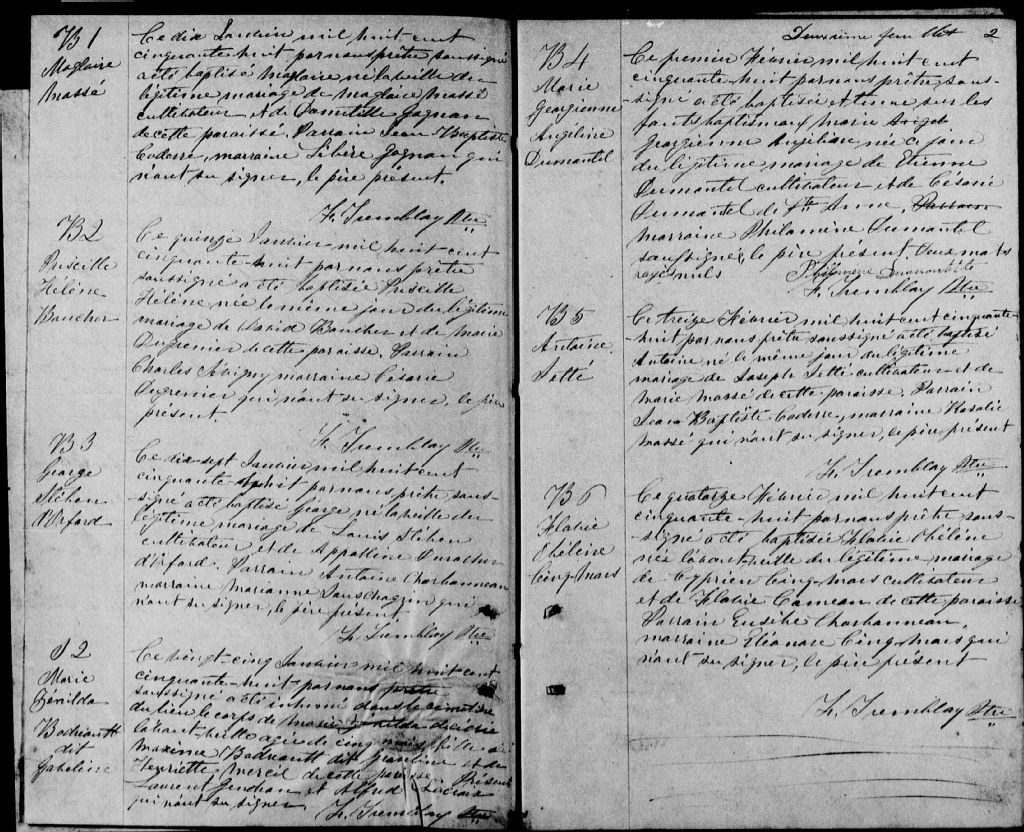 B1
Maglaire
Massé
Ce dix Janvier mil huit cent
cinquante huit par nous prêtre soussigné
a été baptisé Maglaire né la veille du
légitime mariage de Maglaire Massé
cultivateur et de Domitille Gagnon
de cette paroisse. Parrain Jean-Baptiste
Coderre, marraine Libère Gagnon qui
n'ont su signer, le père présent.
F. Tremblay Ptre
B2
Priscille
Hélène
Baucher
Ce quinze Janvier mil huit cent
cinquante-huit par nous prêtre
soussigné a été baptisée Priscille
Hélène née le même jour du légitime
mariage de David Baucher et de Marie
Dugrenier de cette paroisse. Parrain
Charles marraine Césarie
Dugrenier qui n'ont su signer, le père
présent.
F. Tremblay Ptre
B3
George
Stéhen
d'Orford
Ce dix-sept Janvier mil huit cent
cinquante huit par nous prêtre sous-
signé a été baptisé George né la veille du
légitime mariage de Louis Stéhen
cultivateur et de Appolline
d'Orford. Parrain Antoine Charbonneau
marraine Marianne qui
n'ont su signer, le père présent.
F. Tremblay Ptre
S2
Marie
Zénilda
Bodreault
dit
Gabeline
Ce vingt-cinq Janvier mil huit cent
cinquante-huit par nous prêtre
soussigné a été inhumé dans le cimetière
du lieu le corps de Marie Zénilda décédée
l'avant-veille agée de cinq mois fille de
Maxime Bodreault dit et de
Henriette Mercil de cette paroisse. Présents
Laurent Gendron et Alfred
qui n'ont su signer. F. Tremblay Ptre
Deuxième feuillet 2
B4
Marie
Georgienne
Angéline
Dumontel
Ce premier Février mil huit cent
cinquante-huit par nous prêtre sous-
signé a été baptisée et tenue sur les
fonts baptismaux Marie Angel
Georgienne Angéline née ce jour
du légitime mariage de Etienne
Dumontel cultivateur et de Césarie
Dumontel de Ste Anne, Parrain
Marraine Philomène Dumontel
soussignée, le père présent. Deux mots
rayés nuls Philomène
F. Tremblay Ptre
B5
Antoine
Jetté
Ce treize Février mil huit cent cinquante-
huit par nous prêtre soussigné a été baptisé
Antoine né le même jour du légitime
mariage de Joseph Jetté cultivateur et de
Marie Massé de cette paroisse. Parrain
Jean Baptiste Coderre, marraine Rosalie
Massé qui n'ont su signer, le père présent
F. Tremblay Ptre
B6
Flavie
Ohéléne
Cinq-Mars
Ce quatorze Février mil huit cent
cinquante-huit par nous prêtre sous-
signé a été baptisée Flavie Ohéléne
née l'avant-veille du légitime mariage
de Cyprien Cinq-Mars cultivateur
et de Flavie Comeau de cette paroisse
Parrain Eusèbe Charbonneau,
marraine Eléonore Cinq-Mars qui
n'ont su signer, le père présent
F. Tremblay Ptre